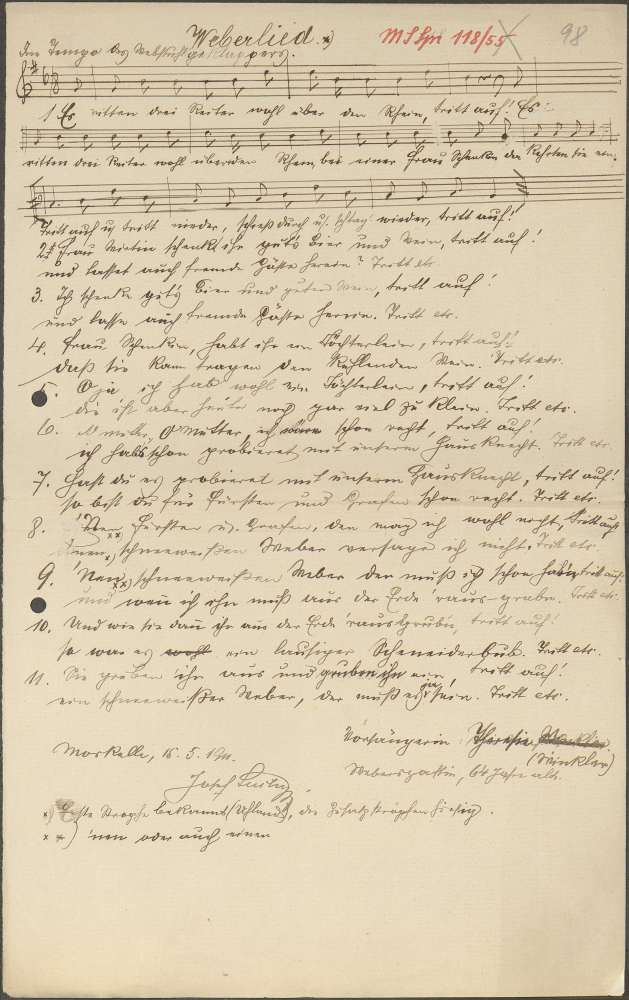 Weberlied. x)
MSSpr 118/55
98
Im Tempo des Webstuhlgeklappers.
1. Es ritten drei Reiter wohl über den Rhein, tritt auf! Es
ritten drei Reiter wohl über den Rhein, bei einer Frau Schenkin da kehrten sie ein.
Tritt auf u. tritt nieder, schieß durch u. schlag wieder, tritt auf!
2. Frau Wirtin schenkt ihr gut's Bier und Wein, tritt auf!
und lasset auch fremde Gäste herein? Tritt etc.
3. Ich schenke gut's Bier und guten Wein, tritt auf!
und lasse auch fremde Gäste herein. Tritt etc.
4. Frau Schenkin, habt ihr ein Töchterlein, tritt auf!
daß sie kann tragen den kühlenden Wein. Tritt etc.
5. O ja ich hab wohl ein Töchterlein, tritt auf!
die ist aber heute noch gar viel zu klein. Tritt etc.
6. O Mutter, ich schon recht, tritt auf!
ich hab's schon probieret mit unserm Hausknecht. Tritt etc.
7. Hast du es probieret mit unserm Hausknecht, tritt auf!
so bist du für Fürsten und Grafen schon recht. Tritt etc.
8. Fürsten u. Grafen, den mag ich wohl nicht, tritt auf
schneeweißen Weber versage ich nicht. Tritt etc.
9. 'Nen xx) schneeweißen Weber den muß ich schon hab'n tritt auf!
und wenn ich ihn muß aus der Erde 'raus graben. Tritt etc.
10. Und wie sie dann ihn aus der Erde 'raus grub'n, tritt auf!
so war es wohl ein lausiger Schneiderbub. Tritt etc.
11. Sie graben ihn aus und gruben ihn ein, tritt auf!
ein schneeweißer Weber, der muß es ja sein. Tritt etc.
Vorsängerin Theresia Winkler
(Winkler)
Morkelle, 18. 5. 1911.
Weberin, 64 Jahre alt.
Josef
x) Erste Strophe bekannt (Uhland), die Zusatzstrophen hiesig.
x x) 'nen oder auch einen